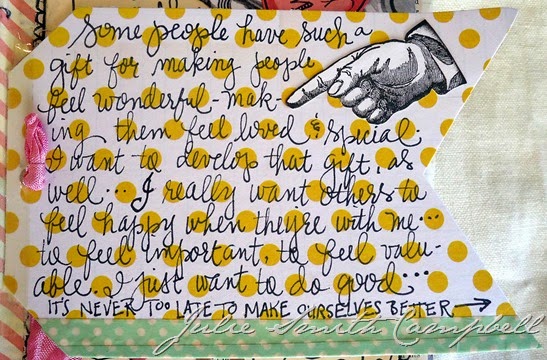 Some people have such a
gift for making people
feel wonderful - mak-
ing them feel loved & special.
I want to develop that gift, as
well... I really want others to
feel happy when they're with me...
to feel important, to feel valu-
able. I just want to do good...
IT'S NEVER TOO LATE TO MAKE OURSELVES BETTER →
Julie Smith Campbell